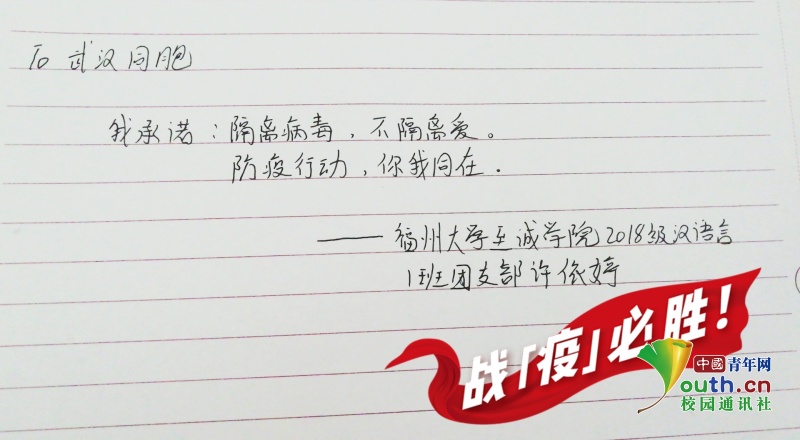 To 武汉同胞
我承诺：隔离病毒，不隔离爱。
防疫行动，你我同在.
——福州大学至诚学院2018级汉语言
1班团支部 许依婷
战「疫」必胜！
中國青年网
youth.cn
校园通讯社